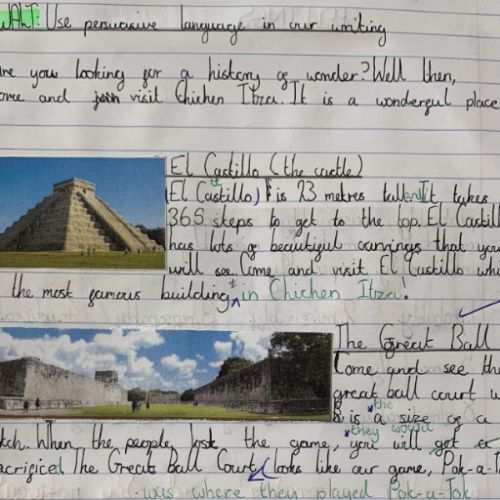 WALT: Use persuasive language in our writing
are you looking for a history of wonder? Well then,
come and join visit Chichen Itza. It is a wonderful place
El Castillo (the castle)
(El Castillo) it is 23 metres tall and It takes
365 steps to get to the top. El Castill
has lots of beautiful carvings that you
will see. Come and visit El Castillo whi
the most famous building in Chichen Itza!
The Great Ball
Come and see the
great ball court w
is the size of a
tch. When the people lost the game, they would you will get a
acrificed The Great Ball Court looks like our game, Pok-a-T
was where they played Pok-a-Tok